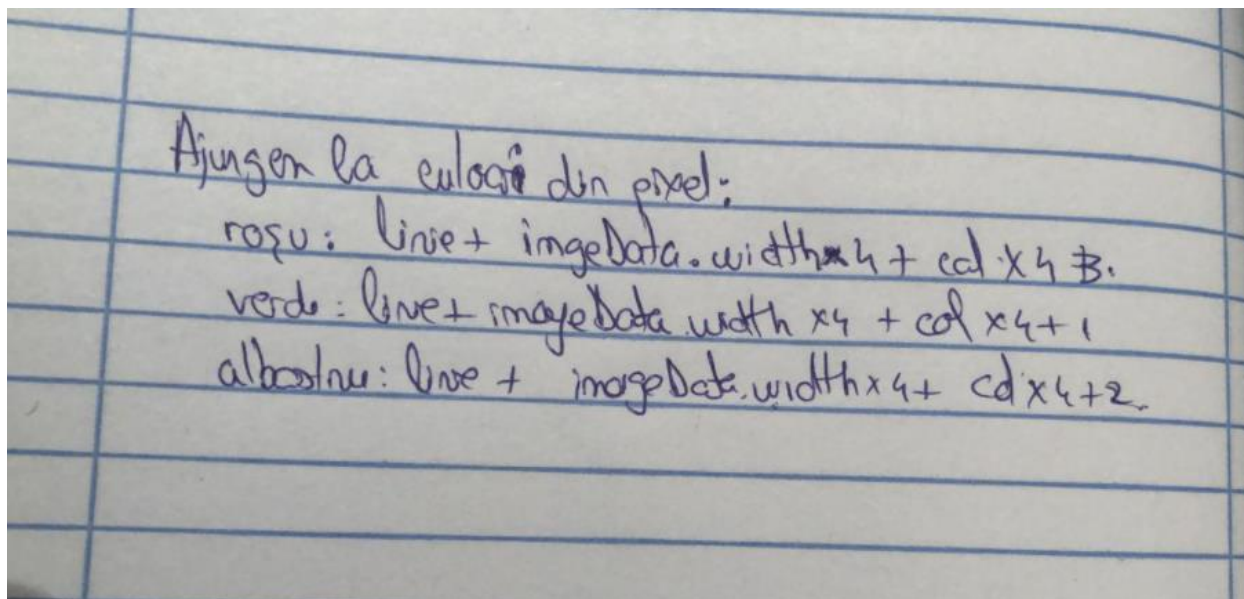 Ajungem la culori din pixel:
roșu: linie + imgeData.width x 4 + col x 4
verde: linie + imageData.width x4 + col x4+1
albastru: linie + imageData.width x4 + col x4+2.